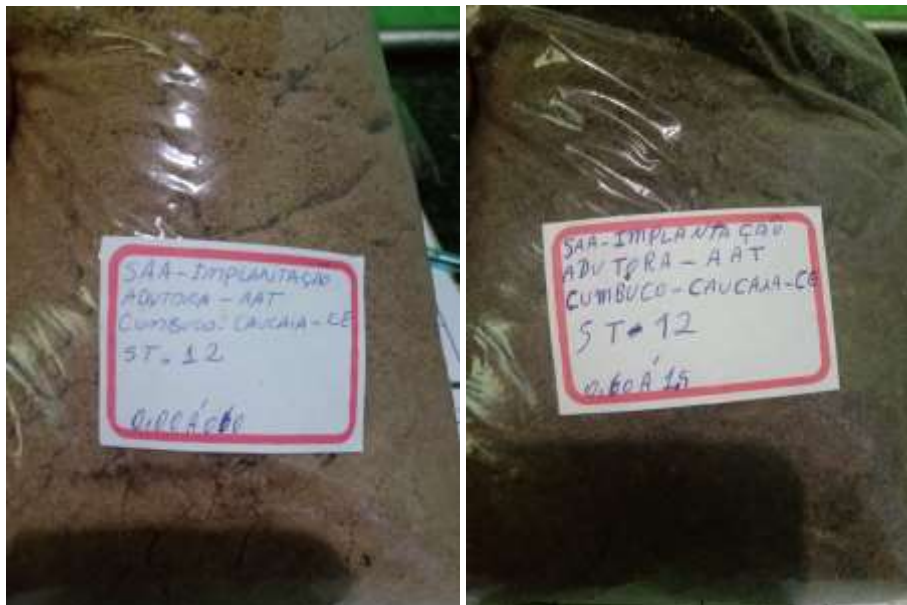 SAA-IMPLANTAÇÃO
ADUTORA - AAT
CUMBUCO-CAUCAIA-CE
ST-12
0,00 À 0,60
SAA-IMPLANTAÇÃO
ADUTORA - AAT
CUMBUCO-CAUCAIA-CE
ST-12
0,60 À